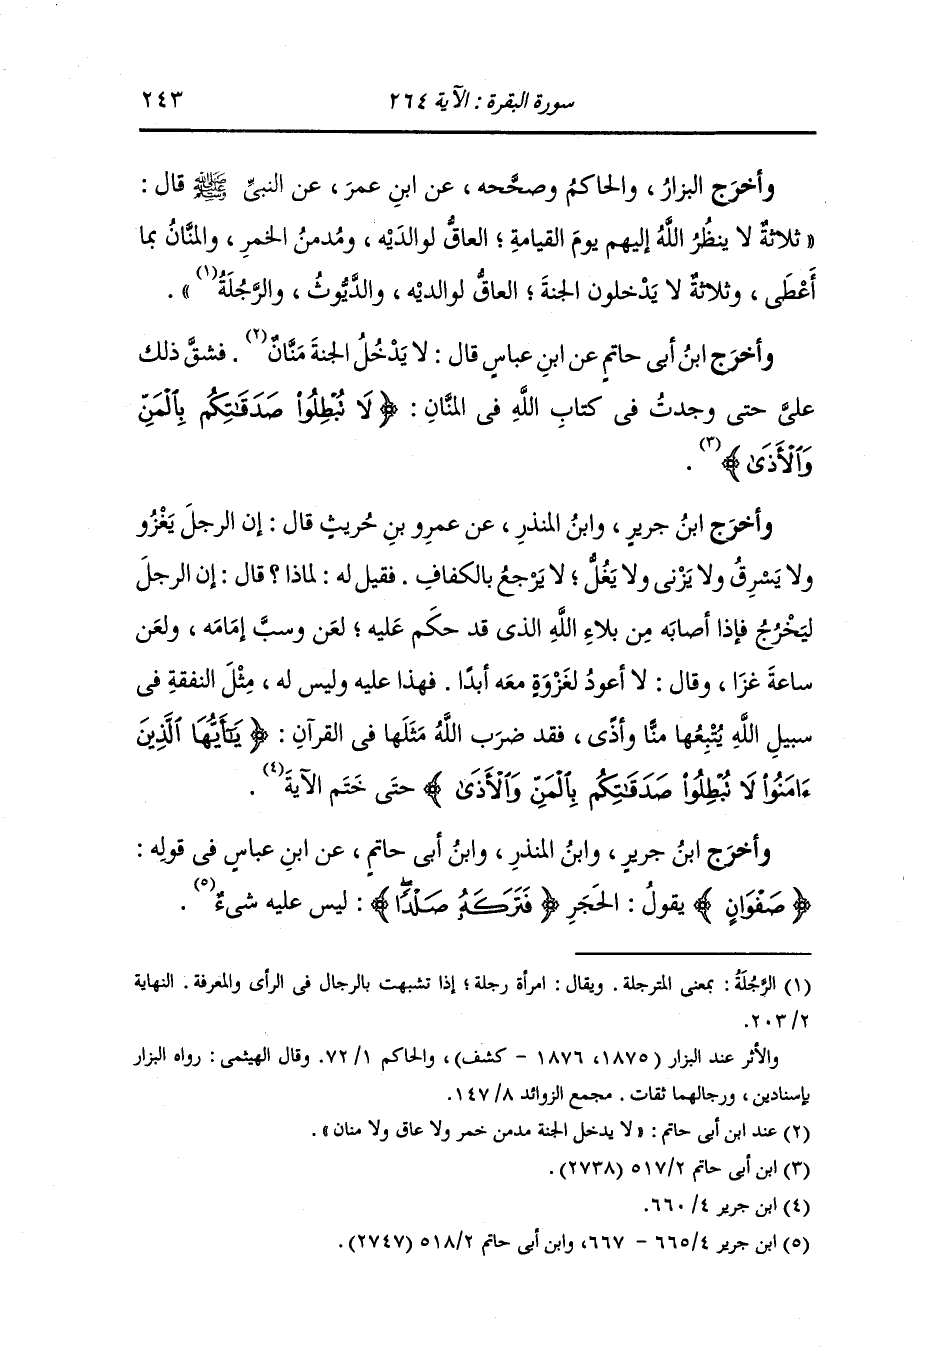 سورة البقرة : الآية ٢٦٤
٢٤٣
وأخرَج البزارُ ، والحاكمُ وصحَّحه ، عن ابنِ عمرَ ، عن النبىِّ ﷺ قال :
« ثلاثةٌ لا ينظُرُ اللَّهُ إليهم يومَ القيامةِ ؛ العاقُّ لوالدَيْه ، ومُدمنُ الخمرِ ، والمنَّانُ بما
أَعْطَى ، وثلاثةٌ لا يَدْخلون الجنةَ ؛ العاقُّ لوالديْه ، والدَّيُّوثُ ، والرَّجُلَةُ(١) » .
وأخرَج ابنُ أبى حاتمٍ عن ابنِ عباسٍ قال : لا يَدْخُلُ الجنةَ مَنَّانٌ(٢) . فشقَّ ذلك
علىَّ حتى وجدتُ فى كتابِ اللَّهِ فى المنَّانِ : ﴿ لَا نُبْطِلُوا۟ صَدَقَـٰتِكُم بِٱلْمَنِّ
وَٱلْأَذَىٰ ﴾(٣) .
وأخرَج ابنُ جريرٍ ، وابنُ المنذرِ ، عن عمرِو بنِ حُريثٍ قال : إن الرجلَ يَغْزُو
ولا يَسْرِقُ ولا يَزْنى ولا يَغُلُّ ؛ لا يَرْجعُ بالكفافِ . فقيل له : لماذا ؟ قال : إن الرجلَ
ليَخْرُجُ فإذا أصابَه مِن بلاءِ اللَّهِ الذى قد حكَم عَليه ؛ لعَن وسبَّ إمَامَه ، ولعَن
ساعةَ غزَا ، وقال : لا أعودُ لغَزْوَةٍ معَه أبدًا . فهذا عليه وليس له ، مِثْلَ النفقةِ فى
سبيلِ اللَّهِ يُتْبِعُها منًّا وأذًى ، فقد ضرَب اللَّهُ مَثَلَها فى القرآنِ : ﴿ يَـٰٓأَيُّهَا ٱلَّذِينَ
ءَامَنُوا۟ لَا نُبْطِلُوا۟ صَدَقَـٰتِكُم بِٱلْمَنِّ وَٱلْأَذَىٰ ﴾ حتى ختَم الآيةَ(٤) .
وأخرَج ابنُ جريرٍ ، وابنُ المنذرِ ، وابنُ أبى حاتمٍ ، عن ابنِ عباسٍ فى قولِه :
﴿ صَفْوَانٍ ﴾ يقولُ : الحَجَرِ ﴿ فَتَرَكَهُۥ صَلْدًۭا ﴾ : ليس عليه شىءٌ(٥) .
(١) الرَّجُلَةُ : بمعنى المترجلة . ويقال : امرأة رجلة ؛ إذا تشبهت بالرجال فى الرأى والمعرفة . النهاية
٢/ ٢٠٣.
والأثر عند البزار (١٨٧٥، ١٨٧٦ - كشف) ، والحاكم ١/ ٧٢. وقال الهيثمى : رواه البزار
بإسنادين ، ورجالهما ثقات . مجمع الزوائد ٨/ ١٤٧.
(٢) عند ابن أبى حاتم : « لا يدخل الجنة مدمن خمر ولا عاق ولا منان » .
(٣) ابن أبى حاتم ٢/ ٥١٧ (٢٧٣٨) .
(٤) ابن جرير ٤/ ٦٦٠.
(٥) ابن جرير ٤/ ٦٦٥ - ٦٦٧، وابن أبى حاتم ٢/ ٥١٨ (٢٧٤٧) .